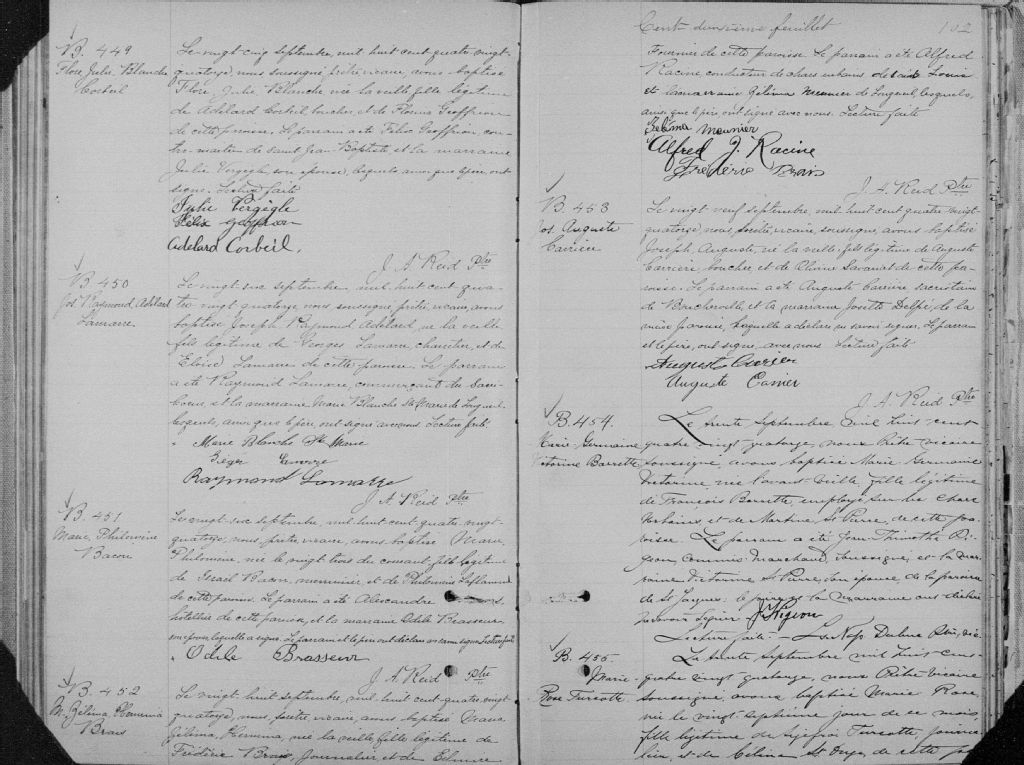 B. 449
Flore Julie Blanche
Corbeil
Le vingt-cinq septembre, mil huit cent quatre vingt-
quatorze, nous soussigné prêtre, vicaire, avons baptisé
Flore, Julie Blanche née la veille, fille légitime
de Adélard Corbeil boucher, et de Flosina Geoffrion
de cette paroisse. Le parrain a été Félix Geoffrion, con-
tre-maître de Saint Jean Baptiste et la marraine
Julie Vergègle, son épouse, lesquels ainsi que le père, ont
signé. Lecture faite
Julie Vergègle
Félix Geoffrion
Adelard Corbeil.
J. A. Reid Ptre
B 450
Jos. Raymond Adélard
Lamarre.
Le vingt-six septembre, mil huit cent qua-
tre vingt quatorze, nous soussigné prêtre, vicaire, avons
baptisé Joseph Raymond Adélard, né la veille
fils légitime de Georges Lamarre, charretier, et de
Eloïse Lamarre de cette paroisse. Le parrain
a été Raymond Lamarre, commerçant du
et la marraine Marie Blanche Ste Marie de Longueuil
lesquels, ainsi que le père, ont signé avec nous Lecture faite
Marie Blanche Ste Marie
Raymond Lamarre
J. A. Reid Ptre
B. 451
Marie, Philomène
Bacon
Le vingt-six septembre, mil huit cent quatre vingt-
quatorze, nous, prêtre, vicaire, avons baptisé Marie,
Philomène, née le vingt trois du courant, fille légitime
de Israël Bacon, menuisier et de Philomène Laflamme
de cette paroisse. Le parrain a été Alexandre
hôtellier de cette paroisse, et la marraine Odile Brasseur
laquelle a signé. Le parrain et le père ont déclaré ne savoir signer. Lecture faite
Odile Brasseur
J. A. Reid Ptre
B. 452
M. Zélima Hermina
Brais
Le vingt huit septembre, mil huit cent quatre vingt
quatorze, nous, prêtre, vicaire, avons baptisé Marie
Zélima, Hermina, née la veille, fille légitime de
Frédéric Brais, Journalier, et de Edmire
Cent deuxième feuillet
102
Fournier de cette paroisse. Le parrain a été Alfred
Racine, conducteur de chars urbains de Saint Louis
et la marraine Zélima Meunier de Longueuil, lesquels,
ainsi que le père, ont signé avec nous. Lecture faite
Zelima Meunier
Alfred J. Racine
Frédéric Brais
J. A. Reid Ptre
B. 453
Jos. Auguste
Carrière
Le vingt neuf septembre, mil huit cent quatre vingt-
quatorze, nous, prêtre, vicaire, soussigné, avons baptisé
Joseph Auguste, né la veille, fils légitime de Auguste
Carrière, boucher, et de Olivine Savariat de cette pa-
roisse. Le parrain a été Auguste Carrière sacristain
de Boucherville et la marraine Josette Delpé, de la
même paroisse, laquelle a déclaré ne savoir signer. Le parrain
et le père, ont signé, avec nous Lecture faite
Auguste Carrier
Auguste Carrier
J. A. Reid Ptre
B. 454.
Marie-Germaine
Victorine Barrette
Le trente septembre mil huit cent
quatre-vingt quatorze, nous Prêtre vicaire
soussigné, avons baptisé Marie Germaine
Victorine, née l'avant-veille, fille légitime
de François Barrette, employé sur les chars
Urbains, et de Martine St Pierre, de cette pa-
roisse. Le parrain a été Jean Timothé Pi-
geon, Commis Marchand, soussigné, et la mar-
raine Victorine St Pierre, son épouse, de la paroisse
de St Jacques. le père et la marraine ont déclaré
ne savoir signer J. Pigeon
Lecture faite -
B. 455.
Marie-
Rose Turcotte
Le trente septembre mil huit cent
quatre vingt quatorze, nous Prêtre-Vicaire
soussigné, avons baptisé Marie Rose,
née le vingt-septième jour de ce mois,
fille légitime de Turcotte, journa-
lier, et de Célina St Onge, de cette pa